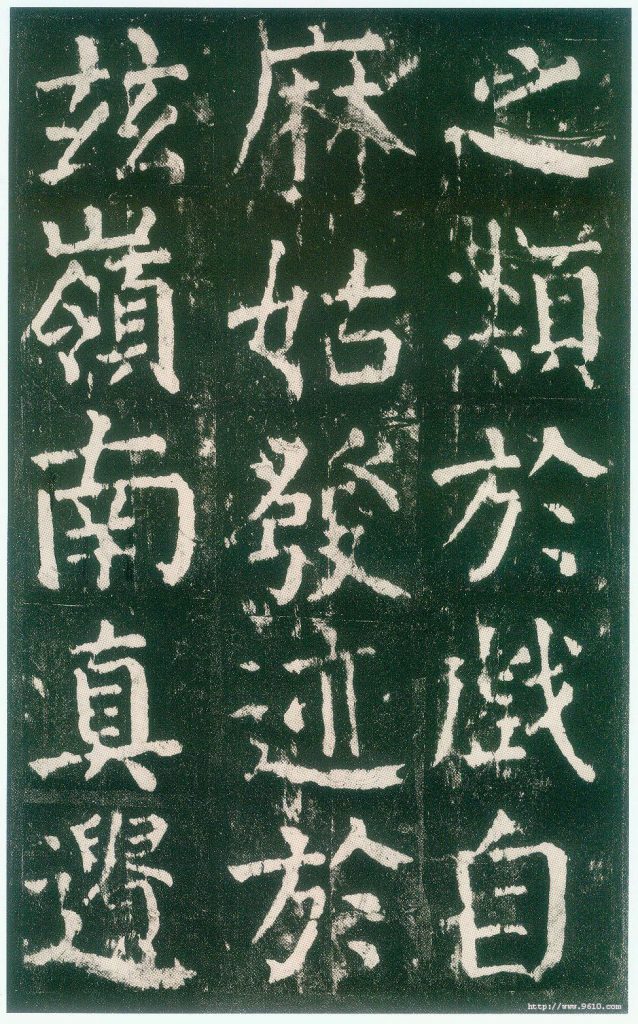 之類於戲自
麻姑發迹於
茲嶺南真遺
http://www.9610.com